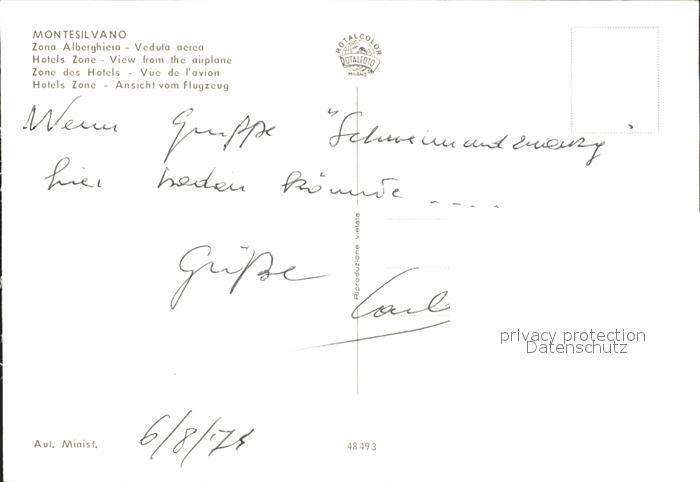 MONTESILVANO
Zona Alberghiera - Veduta aerea
Hotels Zone - View from the airplane
Zone des Hotels - Vue de l'avion
Hotels Zone - Ansicht vom Flugzeug
ROTALCOLOR
ROTALFOTO
MILANO
Wenn Gruppe
hier baden könnte ....
Grüße
Carl
Riproduzione vietata
privacy protection
Datenschutz
6/8/74
Aut. Minist.
48493